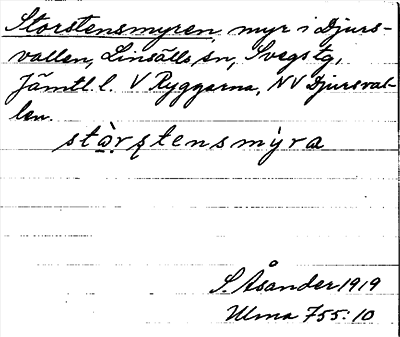 Storstensmyren, myr i Djurs-
vallen, Linsälls sn, Svegs tg,
Jämtl. l. V Ryggarna, NV Djursval-
len.
stὰ̣rstensmyra
S. Åsander 1919
Ulma 755:10